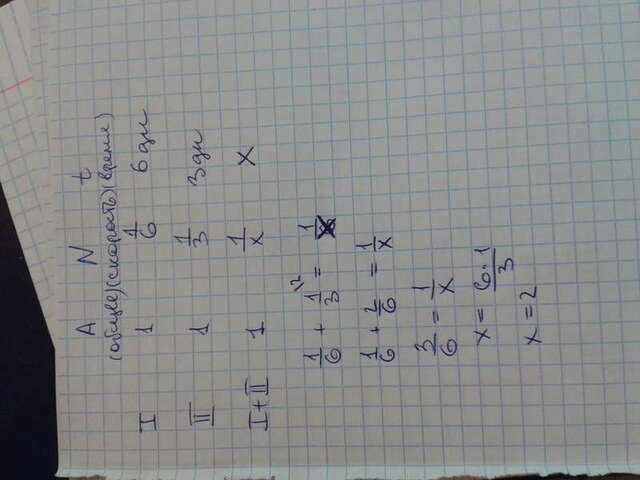 A N t
(общее) (скорость) (время)
I 1 1/6 6 дн
II 1 1/3 3 дн
I + II 1 1/x x
1/6 + 1/3 \2 = 1/x
1/6 + 2/6 = 1/x
3/6 = 1/x
x = 6·1/3
x = 2